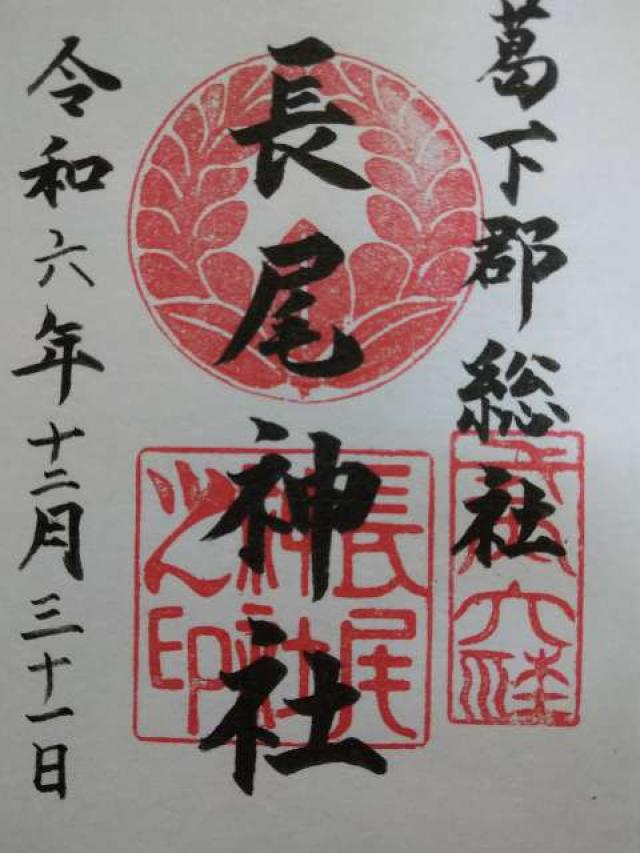 葛下郡総社
長尾神社
令和六年十二月三十一日
長尾
神社
之印